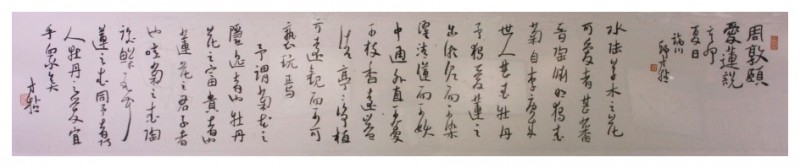 周敦頤
愛蓮說
夏日
水陸草木之花
可愛者甚蕃
晉陶淵明獨愛
菊自李唐來
世人甚愛牡丹
予獨愛蓮之
出淤泥而不染
濯清漣而不妖
中通外直不蔓
不枝香遠益
清亭亭淨植
可遠觀而不可
褻玩焉
予謂菊花之
隱逸者也牡丹
花之富貴者也
蓮花之君子者
也噫菊之愛陶
後鮮有聞
蓮之愛同予者何
人牡丹之愛宜
乎眾矣